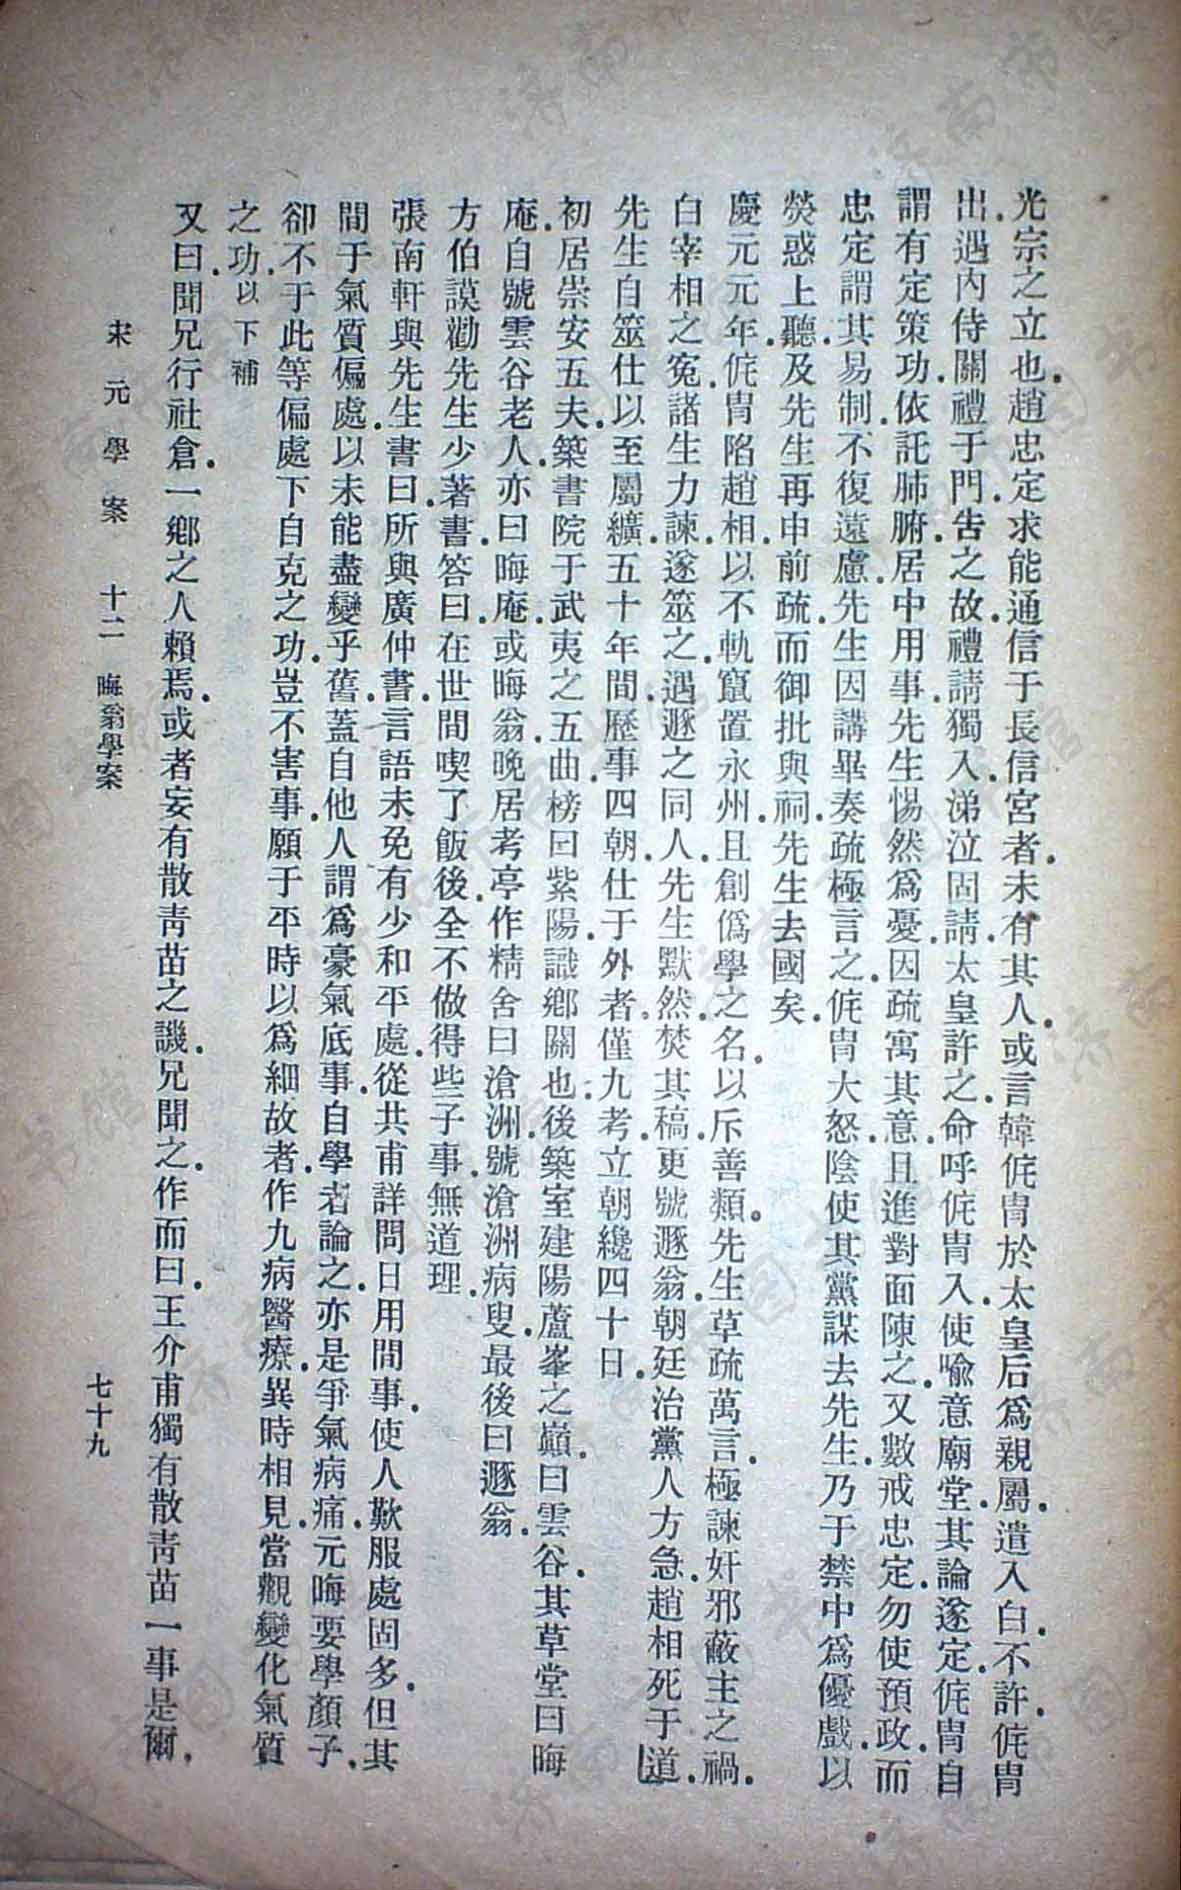 光宗之立也．趙忠定求能通信于長信宮者．未有其人．或言韓侂冑於太皇后爲親屬．遣入白．不許．侂冑
出．遇內侍關禮于門．告之故．禮請獨入．涕泣固請．太皇許之．命呼侂冑入．使喩意廟堂．其論遂定．侂冑自
謂有定策功．依託肺腑．居中用事．先生惕然爲憂．因疏寓其意．且進對面陳之．又數戒忠定．勿使預政．而
忠定謂其易制．不復遠慮．先生因講畢．奏疏極言之．侂冑大怒．陰使其黨謀去先生．乃于禁中爲優戲．以
熒惑上聽．及先生再申前疏．而御批與祠．先生去國矣．
慶元元年．侂冑陷趙相．以不軌竄置永州．且創僞學之名．以斥善類．先生草疏萬言．極諫奸邪蔽主之禍．
白宰相之冤．諸生力諫．遂筮之．遇遯之同人．先生默然．焚其稿．更號遯翁．朝廷治黨人方急．趙相死于道．
先生自筮仕以至屬纊．五十年間．歷事四朝．仕于外者．僅九考．立朝纔四十日．
初居崇安五夫．築書院于武夷之五曲．榜曰紫陽．識鄉關也．後築室建陽蘆峯之巔．曰雲谷．其草堂曰晦
庵．自號雲谷老人．亦曰晦庵．或晦翁．晚居考亭．作精舍曰滄洲．號滄洲病叟．最後曰遯翁．
方伯謨勸先生少著書．答曰．在世間喫了飯後．全不做得些子事．無道理．
張南軒與先生書曰．所與廣仲書．言語未免有少和平處．從共甫詳問日用間事．使人歎服處固多．但其
間于氣質偏處．以未能盡變乎舊．蓋自他人謂爲豪氣底事．自學者論之．亦是爭氣病痛．元晦要學顏子．
卻不于此等偏處下自克之功．豈不害事．願于平時以爲細故者．作九病醫療．異時相見．當觀變化氣質
之功．以下補
又曰．聞兄行社倉．一鄉之人賴焉．或者妄有散靑苗之譏．兄聞之．作而曰．王介甫獨有散靑苗一事是爾．
宋元學案　十二　晦翁學案
七十九